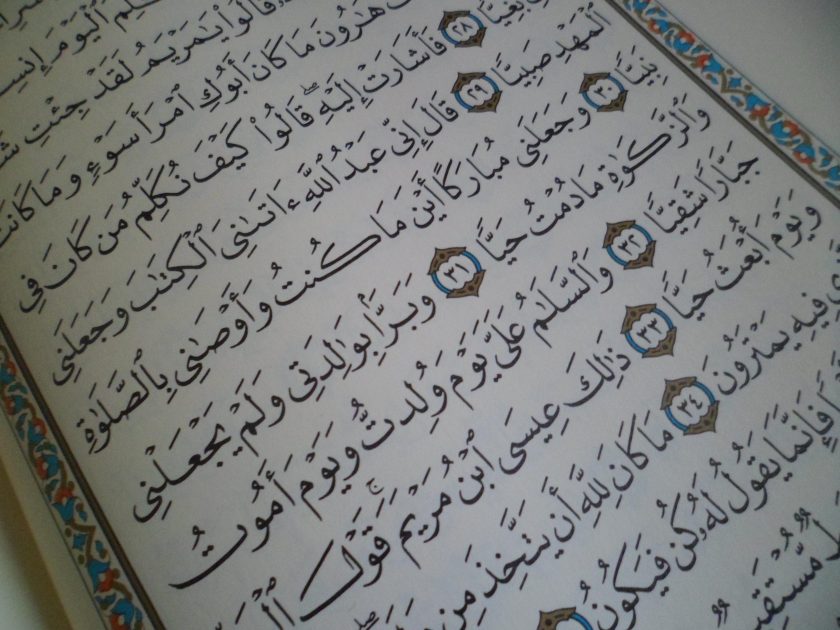 ٱلْيَوْمَ
قَالُوا۟ يَٰمَرْيَمُ لَقَدْ جِئْتِ
هَٰرُونَ مَا كَانَ أَبُوكِ ٱمْرَأَ سَوْءٍ وَمَا كَانَتْ
بَغِيًّا ٢٨ فَأَشَارَتْ إِلَيْهِ ۖ قَالُوا۟ كَيْفَ نُكَلِّمُ مَن كَانَ فِى
ٱلْمَهْدِ صَبِيًّا ٢٩ قَالَ إِنِّى عَبْدُ ٱللَّهِ ءَاتَىٰنِىَ ٱلْكِتَٰبَ وَجَعَلَنِى
نَبِيًّا ٣٠ وَجَعَلَنِى مُبَارَكًا أَيْنَ مَا كُنتُ وَأَوْصَٰنِى بِٱلصَّلَوٰةِ
وَٱلزَّكَوٰةِ مَا دُمْتُ حَيًّا ٣١ وَبَرًّۢا بِوَٰلِدَتِى وَلَمْ يَجْعَلْنِى
جَبَّارًا شَقِيًّا ٣٢ وَٱلسَّلَٰمُ عَلَىَّ يَوْمَ وُلِدتُّ وَيَوْمَ أَمُوتُ
وَيَوْمَ أُبْعَثُ حَيًّا ٣٣ ذَٰلِكَ عِيسَى ٱبْنُ مَرْيَمَ ۚ قَوْلَ
فِيهِ يَمْتَرُونَ ٣٤ مَا كَانَ لِلَّهِ أَن يَتَّخِذَ مِن
فَإِنَّمَا يَقُولُ لَهُۥ كُن فَيَكُونُ